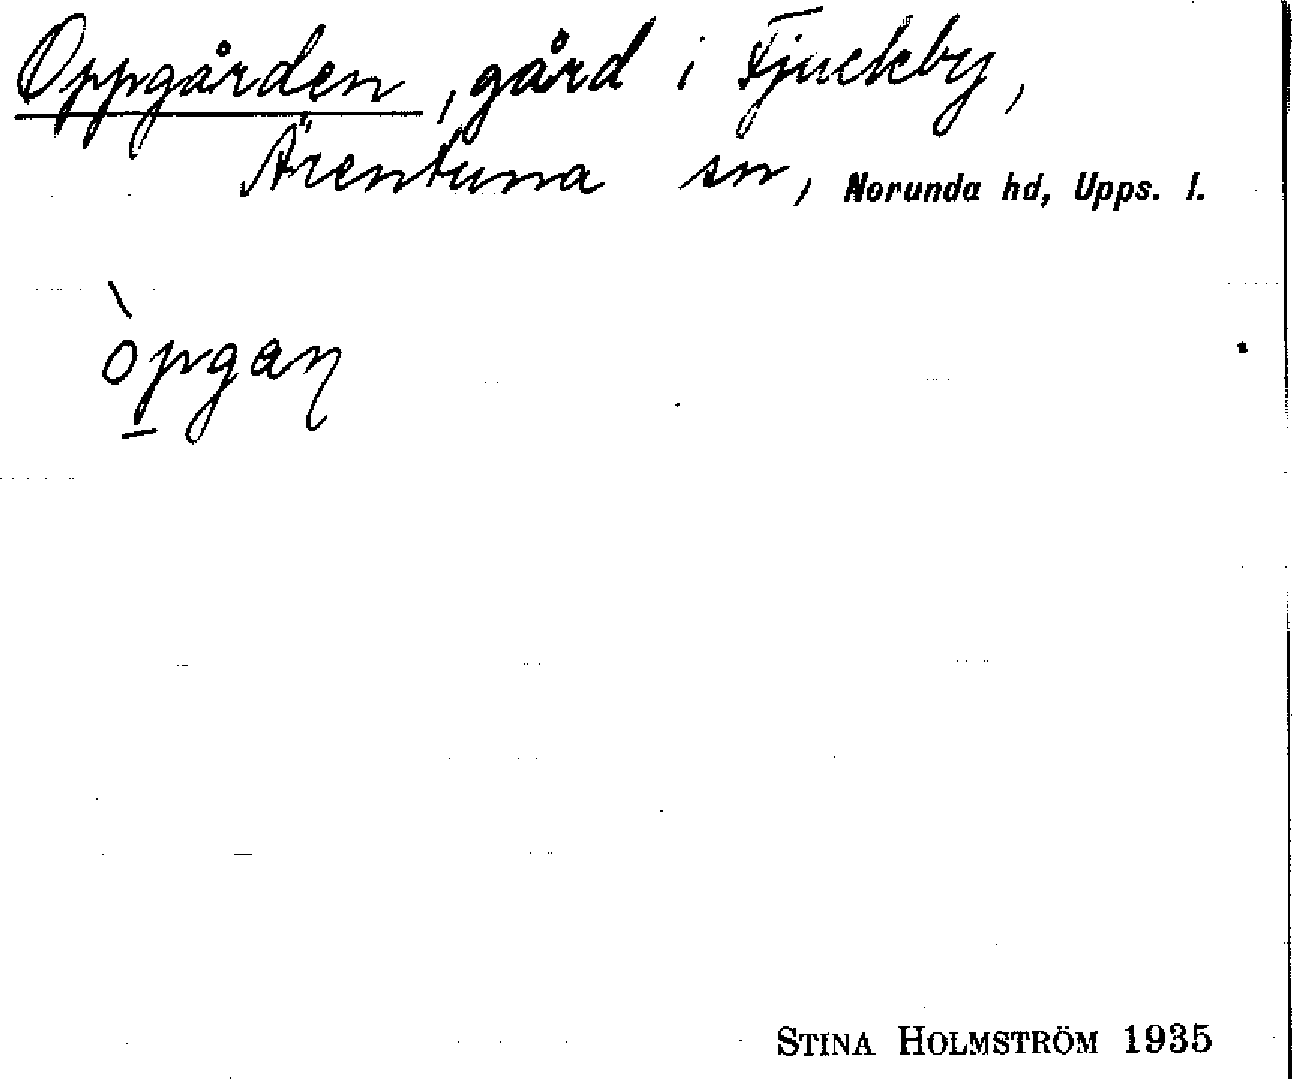 Oppgården, gård i Fjuckby,
Ärentuna sn, Norunda hd, Upps. l.
òpgaɳ
STINA HOLMSTRÖM 1935